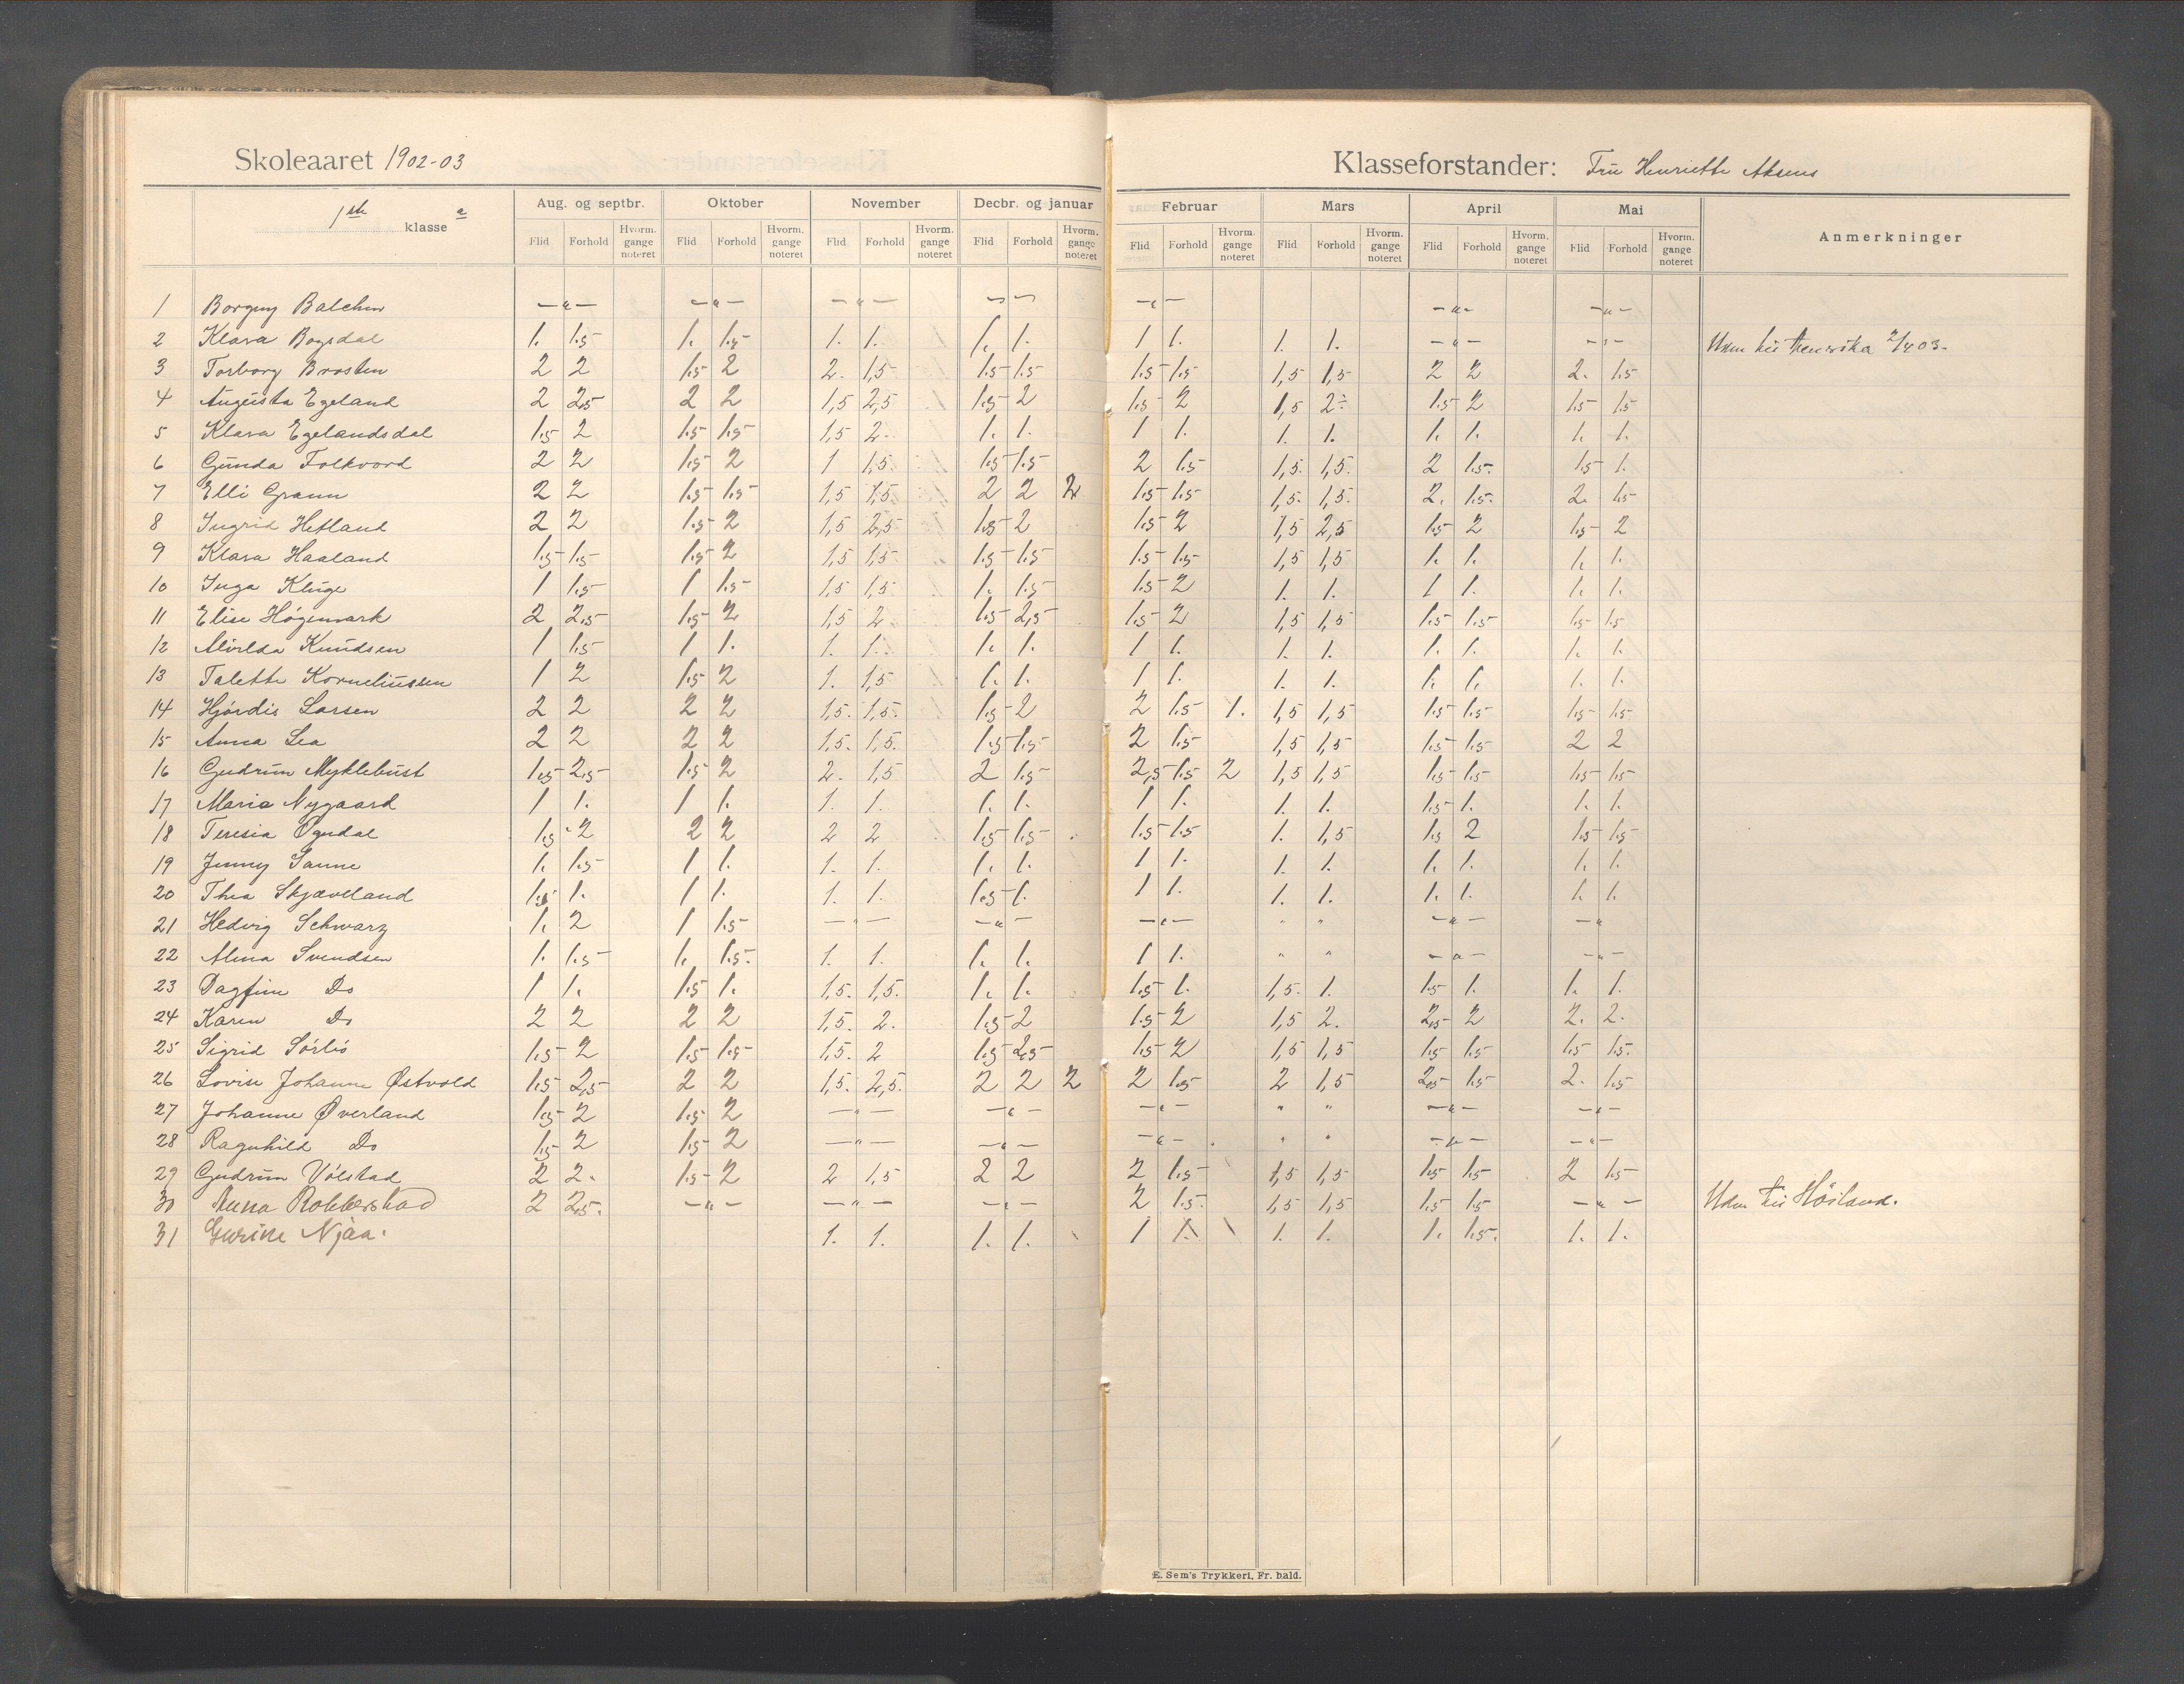 Skoleaaret 1902-03 Klasseforstander: Fru Henriette
Aug. og septbr. Oktober November Decbr. og januar Februar Mars April Mai Anmerkninger
1ste klasse a
Flid Forhold Hvorm. gange noteret Flid Forhold Hvorm. gange noteret Flid Forhold Hvorm. gange noteret Flid Forhold Hvorm. gange noteret Flid Forhold Hvorm. gange noteret Flid Forhold Hvorm. gange noteret Flid Forhold Hvorm. gange noteret Flid Forhold Hvorm. gange noteret
1 Borgny Balchen —"— —"— —"— —"— —"— —"— —"—
2 Klara Bogsdal 1. 1.5 1. 1.5 1. 1. 1. 1. 1 1. 1. 1. —"— —"— 03.
3 Torborg Brosten 2 2 1.5 2 2. 1,5 1.5 1.5 1.5 1.5 1,5 1,5 2 2 2. 1.5
4 Augusta Egeland 2 2.5 2 2 1,5 2,5 1.5 2 1.5 2 1,5 2÷ 1.5 2 1.5 1.5
5 Klara Egelandsdal 1.5 2 1.5 1.5 1,5 2. 1. 1. 1 1. 1. 1. 1. 1. 1. 1.
6 Gunda Folkvord 2 2 1.5 2 1 1,5. 1.5 1.5 2 1.5 1,5. 1,5. 2 1.5. 1.5 1.
7 Elli Grann 2 2 1.5 1.5 1,5 1,5. 2 2 2 1.5 1.5 1,5. 1,5. 2. 1.5. 2. 1.5
8 Ingrid Hetland 2 2 1.5 2 1,5 2,5 1.5 2 1.5 2 1,5 2,5 1.5 2 1.5 2
9 Klara Haaland 1.5 1.5 1.5 2 1,5 1,5 1.5 1.5 1.5 1.5 1,5 1,5 1. 1. 1. 1.
10 Inga Kluge 1 1.5 1 1.5 1,5 1,5 1. 1.5 1.5 2 1. 1. 1 1. 1. 1.
11 Elise Högemark 2 2.5 1.5 2 1,5 2 1.5 2,5 1.5 2 1,5 1,5 1.5 1.5 1.5 1.5
12 Knudsen 1 1.5 1 1. 1. 1. 1. 1. 1 1. 1. 1. 1. 1. 1. 1.
13 Talette Korneliussen 1 2 1.5 2 1. 1,5 1. 1. 1 1. 1. 1. 1. 1. 1. 1.
14 Hjördis Larsen 2 2 2 2 1,5. 1,5. 1.5 2 2 1.5 1. 1,5 1,5 1.5 1.5 1.5 1.5
15 Anna Lea 2 2 2 2 1,5. 1,5. 1.5 1.5 2 1.5 1,5 1,5 1.5 1.5 2 2
16 Gudrun Myklebust 1.5 2.5 1.5 2 2. 1,5 2 1.5 2,5 1.5 2 1,5 1,5 1.5 1.5 1.5 1.5
17 Maria Nygaard 1 1. 1 1. 1. 1. 1. 1. 1 1. 1. 1. 1.5 1. 1. 1.
18 Teresia Ogndal 1.5 2 2 2 2 2 1.5 1.5 1.5 1.5 1. 1,5 1.5 2 1.5 1.5
19 Jenny Sanne 1. 1.5 1 1. 1. 1. 1. 1. 1 1. 1. 1. 1. 1. 1. 1.
20 Thea Skjæveland 1.5 1. 1 1. 1. 1. 1.5 1. 1 1. 1. 1. 1. 1. 1. 1.
21 Hedvig Schwarz 1. 2 1 1.5 —"— —"— —"— " " —"— —"
22 Alma Svendsen 1. 1.5 1. 1.5. 1. 1. 1. 1. 1 1. " " —"— —"—
23 Dagfine Do 1 1. 1.5 1. 1,5. 1,5. 1. 1. 1.5 1. 1,5. 1. 1.5 1. 1. 1.
24 Karen Do 2 2 2 2 1,5. 2. 1.5 2 1.5 2 1,5 2. 2.5 2 2. 2.
25 Sigrid Sörbö 1.5 2 1.5 1.5 1,5. 2 1.5 2.5 1.5 2 1,5 1,5 1.5 1.5 1.5 1.5.
26 Lovise Johanne Østvold 1.5 2.5 2 2 1,5. 2,5. 2 2 2 2 1.5 2 1,5 2.5 1.5 2. 1.5
27 Johanne Øverland 1.5 2 1.5 2 —"— —"— —"— " " —"— —"—
28 Ragnhild Do 1.5 2 1.5 2 —"— —"— —"— " " —"— —"—
29 Gudrun Völstad 2 2. 1.5 2 2 1,5 2 2 2 1.5 1,5 1,5 1.5 1.5 2 1.5
30 Anna 2 2.5. —"— —"— —"— 2 1.5. 1,5 1,5 1.5 1.5 —"— Höiland.
31 Gurine Njåa. 1. 1. 1. 1. 1 1. 1. 1. 1. 1.5. 1. 1.
E. Sem's Trykkeri, Fr. hald.